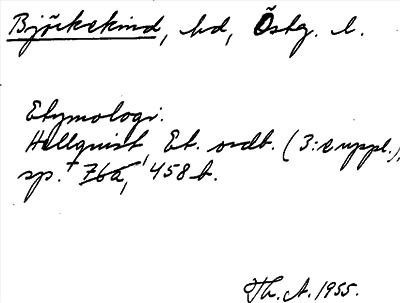 Björkekind, hd, Östg. l.
Etymologi.
Hellquist Et. ordb. (3:e uppl.),
sp. 76a, 458 b.
Th. A. 1955.